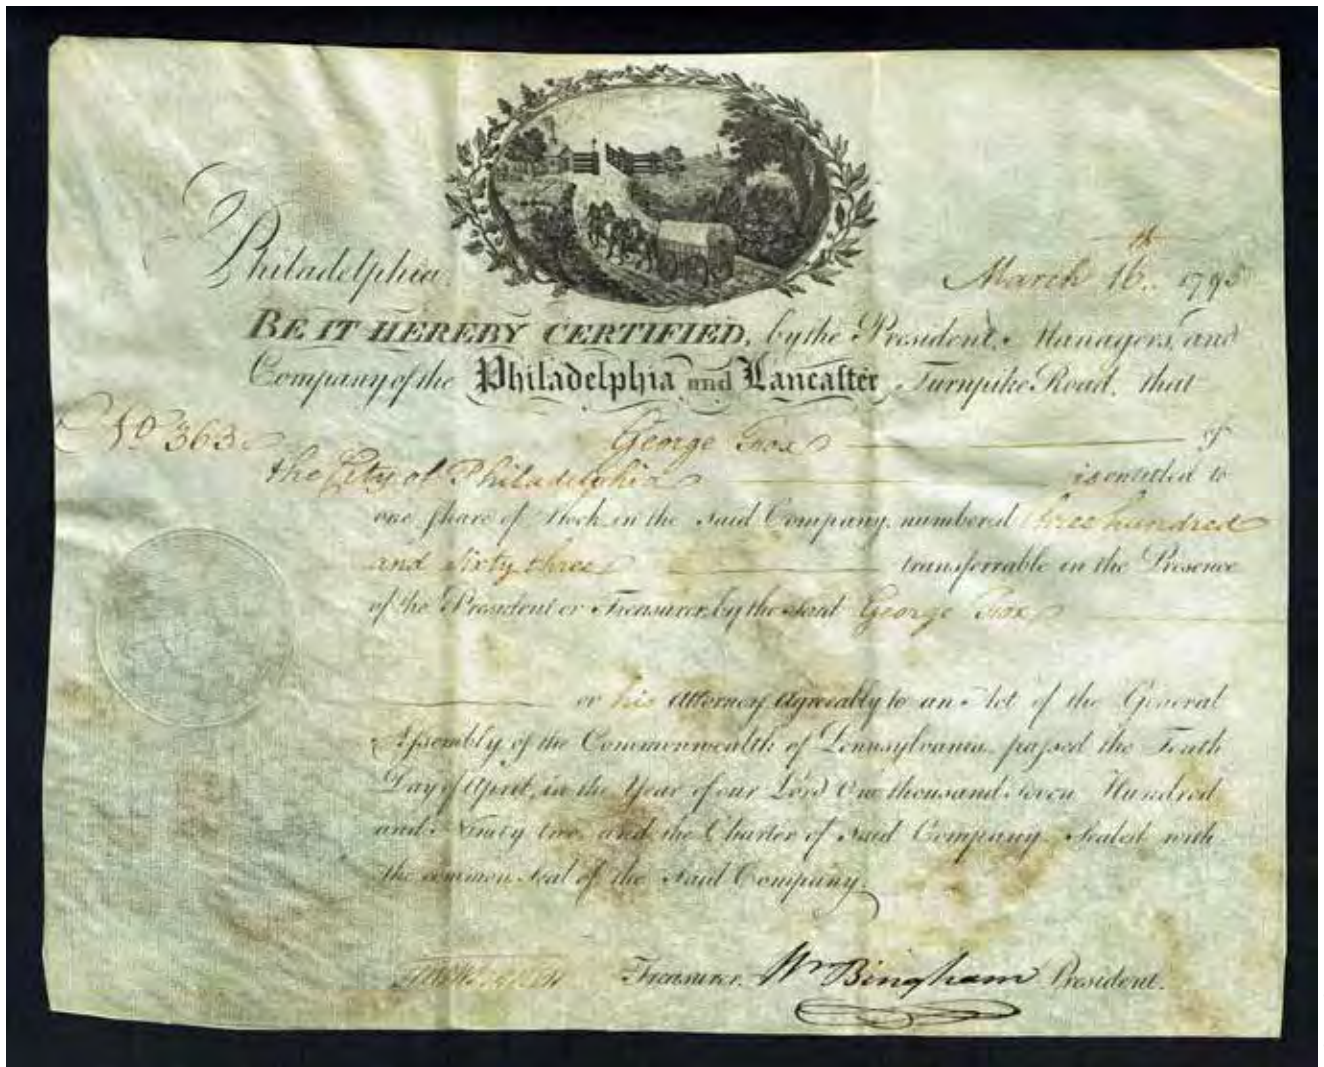 Philadelphia, March 16th 1795
BE IT HEREBY CERTIFIED, by the President, Managers, and
Company of the Philadelphia and Lancaster Turnpike Road, that
No 363 George Fox of
the City of Philadelphia is entitled to
one Share of Stock in the said Company, numbered three hundred
and sixty three transferrable in the Presence
of the President or Treasurer, by the said George Fox
or his Attorney Agreeably to an Act of the General
Assembly of the Commonwealth of Pennsylvania, passed the Tenth
Day of April, in the Year of our Lord One thousand Seven Hundred
and Ninety two, and the Charter of said Company Sealed with
the common Seal of the said Company.
Treasurer. Wm Bingham President.